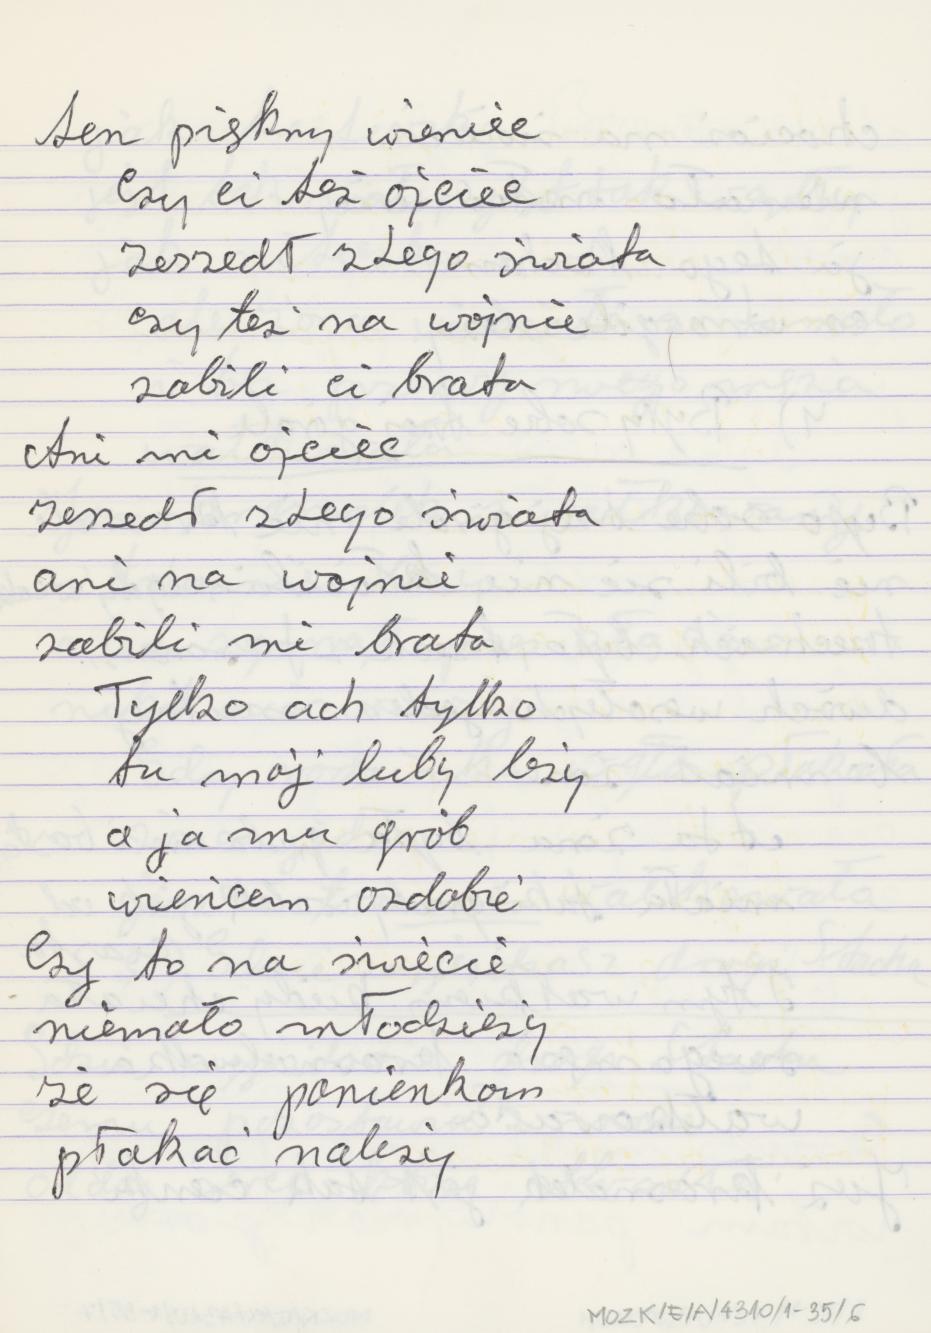 ten piękny wieniec
Czy ci też ojciec
zeszedł z tego świata
czy też na wojnie
zabili ci brata
Ani mi ojciec
zeszedł z tego świata
ani na wojnie
zabili mi brata
Tylko ach tylko
tu mój luby leży
a ja mu grób
wieńcem ozdobię
Czy to na świecie
niemało młodzieży
że się panienkom
płakać należy
MOZK/E/A/4310/1-35/6